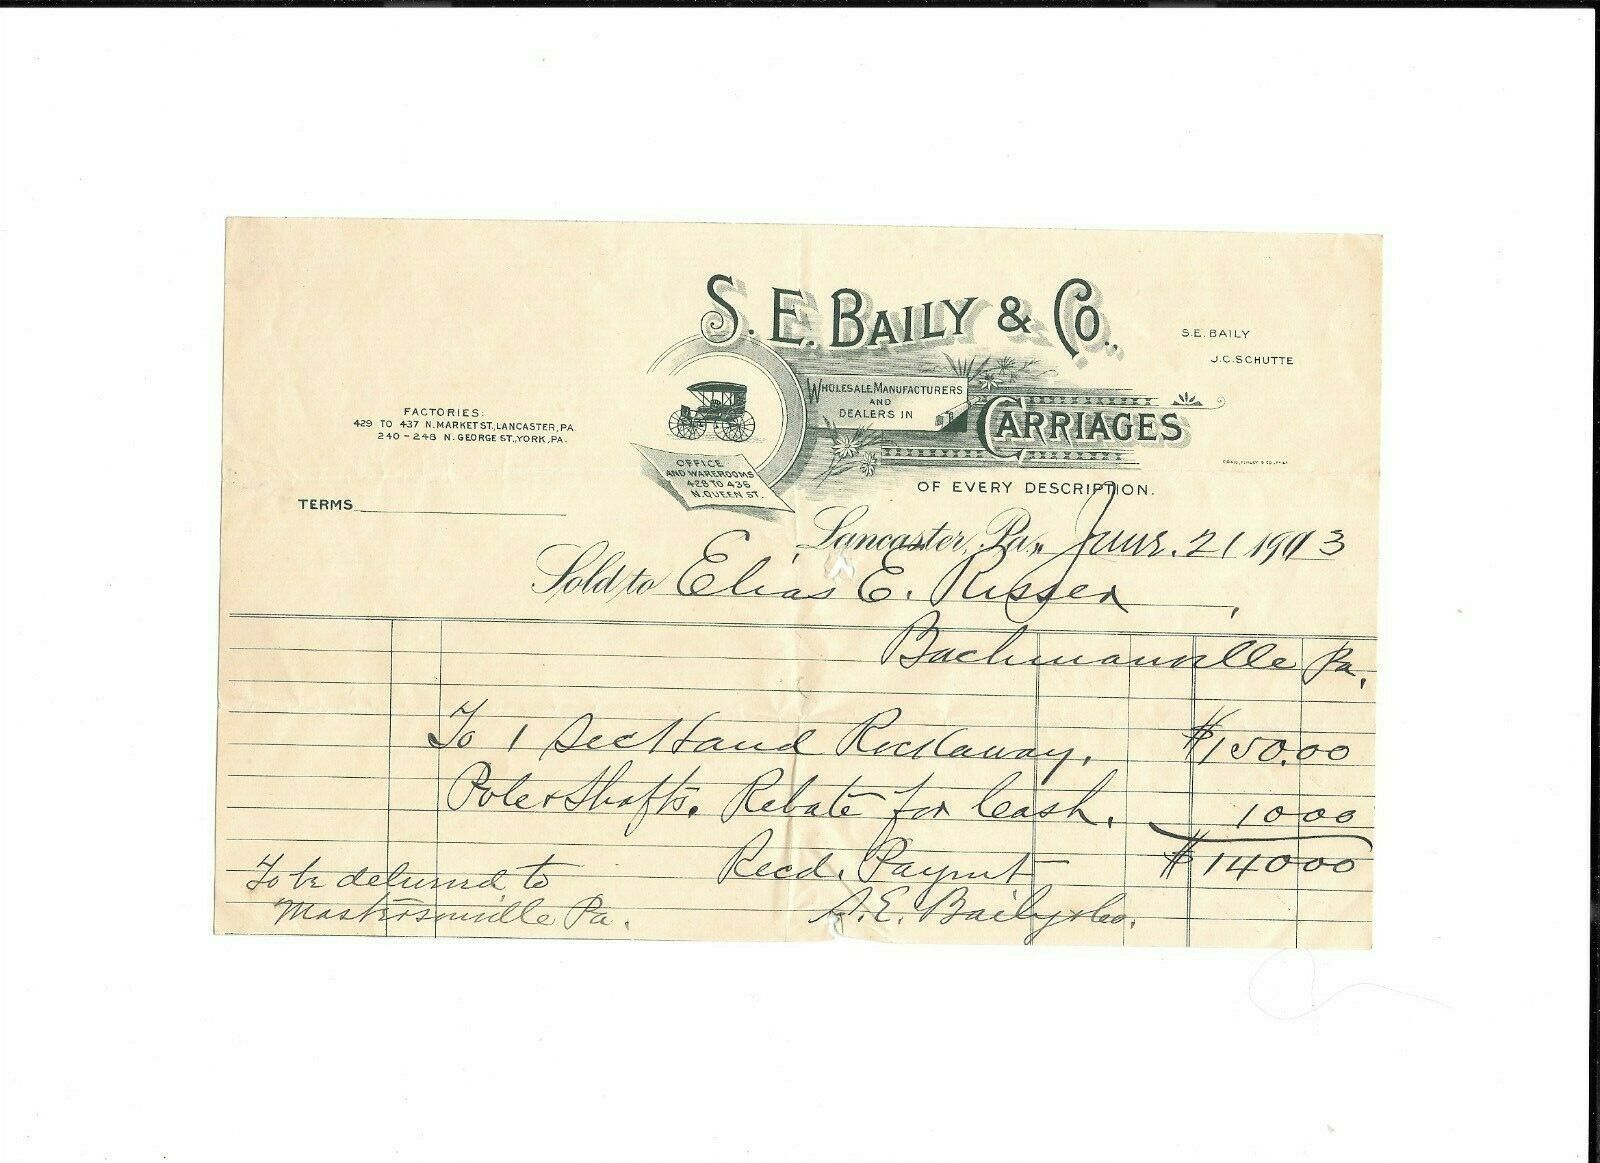 S. E. BAILY & CO.,
S. E. BAILY
J. C. SCHUTTE
WHOLESALE MANUFACTURERS
AND
DEALERS IN
CARRIAGES
OF EVERY DESCRIPTION.
FACTORIES:
429 TO 437 N. MARKET ST., LANCASTER, PA.
240 - 248 N. GEORGE ST., YORK, PA.
OFFICE
AND WAREROOMS
428 TO 436
N. QUEEN ST.
TERMS
Lancaster, Pa., June. 21 1903
Sold to Elias E. Risser,
Bachmanville Pa.
To 1 Sec Hand Rockaway. $150.00
Pole & Shafts. Rebate for Cash. 10 00
$140 00
Recd. Paymt
S. E. Baily & Co.
To be delivered to
Mastersonville Pa.